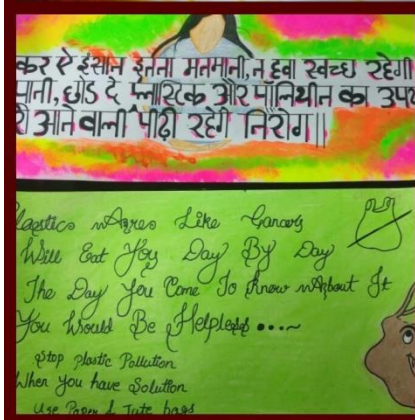 कर ऐ इंसान इतना मनमानी, न हवा स्वच्छ रहेगी
पानी, छोड दे प्लास्टिक और पॉलिथीन का उपय
री आने वाली पीढ़ी रहेगी निरोग||
Plastics Are Like Cancer
Will Eat You Day By Day
The Day You Come To Know About It
You Would Be Helpless ...~
Stop plastic Pollution
When You have Solution
Use Paper & Jute bags